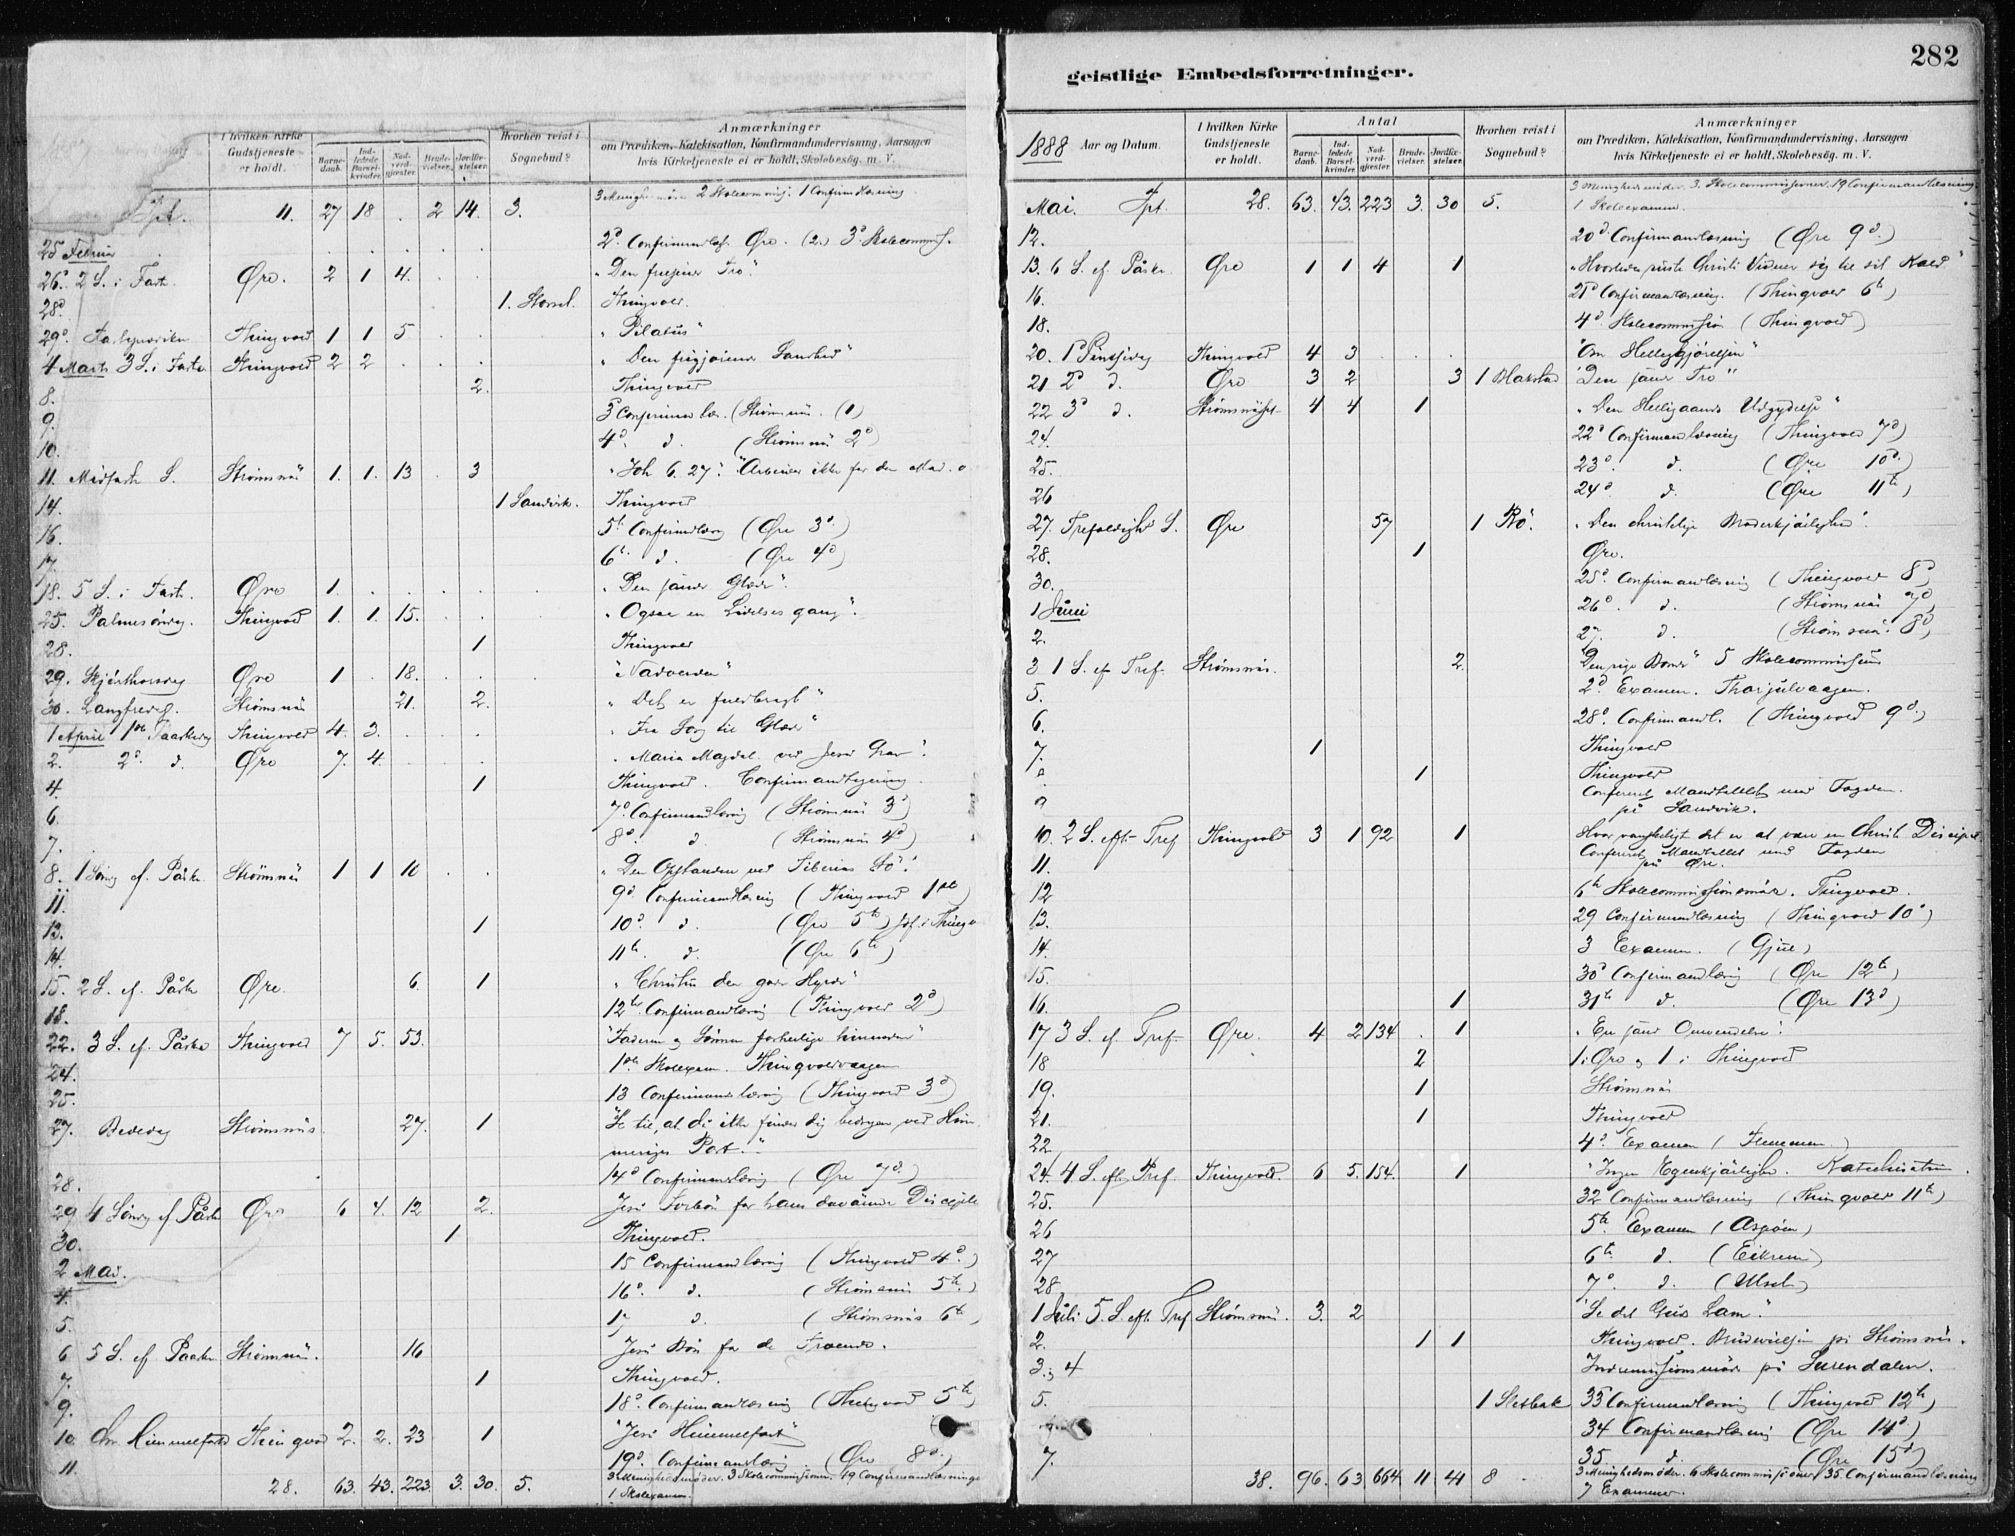 282
geistlige Embedsforretninger.
I hvilken Kirke Gudstjeneste er holdt.
Barnedaab. Indledede Barselkvinder. Nadverdgjester. Brudevielser. Jordfæstelser.
Hvorhen reist i Sognebud?
Anmærkninger
om Prædiken, Katekisation, Konfirmandundervisning, Aarsagen
hvis Kirketjeneste ei er holdt, Skolebesög. m. V.
Tpt. 11. 27 18 . 2 14. 3. 2 Skolecommis. 1 Confirm.læsning
25 Februar 2d Confirmandlæs. Øre. 3d Skolecommis.
26d 2 S. i Fast. Øre. 2 1 4. "Den frelsende Tro."
28d 1. Thingvold.
29d Fasteprædiken Thingvold 1 1 5 "Pilatus"
4 Marts 3 S. i Faste Thingvold 2 2 "Den frigjørende Sandhed"
8. 2. Thingvold
9. 3d Confirmandlæs. (Strømsnæs. (1)
10. 4d d. (Strømsnæs 2d)
11. Midfaste S. Strømsnæs 1. 1. 13 3 "Joh 6. 27." "Arbeider ikke for den Mad.
14. 1 Sandvik. Thingvold
16. 5te Confirmdlæsng (Øre 3d.)
17. 6te d. (Øre 4d)
18. 5 S. i Fast. Øre 1. "Den sande Glæde".
25. Palmesøndag. Thingvold 1. 1. 15. "Ogsaa en Lidelses gang".
28. 1 Thingvold
29. Skjærthorsdag Øre 1 . 18. "Nadverden"
30. Langfredag. Strømsnæs 21. 2. "Det er fuldbragt"
1 April 1ste Paaskedag Thingvold 4. 3. "Fra Sorg til Glæde"
2. 2d. d. Øre 7. 4. "Maria Magdal. ved Jesu Grav".
4. 1 Thingvold. Confirmandlæsning.
6. 7d Confirmandlæsnig (Strømsnæs 3d)
7. 8d d. (Strømsnæs 4d)
8. 1 Søndg ef. Påske Strømsnæs 1 1 10 "Den Opstandne ved Tiberias Sø".
11. 9d Confirmandlæsnig (Thingvold 1ste)
13. 1 10d d. (Øre 5te)
14. 11te d. (Øre 6te)
15. 2 S. ef. Påske Øre. 6. 1 "Christus den gode Hyrde"
18. 12te Confirmandlæsnig (Thingvold 2d)
22. 3 S. ef. Påske Thingvold 7 5. 53. "Faderen og Sønnen forherlige hinanden"
24. 1ste Skolexam. Thingvoldvaagen
25. 13 Confirmandlæsnig (Thingvold 3d)
27. Bededag Strømsnæs. 27. 1 "Se til, at du ikke finder dig bedragen ved Himmeriges Port."
28. 14d Confirmandlæsnig (Øre 7d.)
29 4 Søndg ef Påske Øre 6 4. 12 2. Jesu Forbøn for hans daværende Disciple
30. 1 Thingvold.
2 Mai. 15 Confirmandlæsnig (Thingvold 4d.)
4. 16d. d. (Strømsnæs 5te.)
5. 17 d. (Strømsnæs 6te)
6 5 S. ef Paaske Strømsnæs. 16 Jesu Bøn for de Troende.
7. 1 Thingvold.
9. 18d. Confirmandlæsning (Thingvold 5te)
10. Chr. Himmelfart Thingvold 2. 2. 23 1 "Jesu Himmelfart"
11. 19d. Confirmandlæsnig (Øre 8d.)
28. 63. 43. 223. 3. 30. 5. 3 Menighedsmøder. 3 Skolecommissioner. 19 Confirmandlæsninge
1 Skolexamen.
1888 Aar og Datum.
I hvilken Kirke Gudstjeneste er holdt.
Antal
Barnedaab. Indledede Barselkvinder. Nadverdgjester. Brudevielser. Jordfæstelser.
Hvorhen reist i Sognebud?
Anmærkninger
om Prædiken, Katekisation, Konfirmandundervisning, Aarsagen
hvis Kirketjeneste ei er holdt, Skolebesög. m. V.
Mai. Tpt. 28. 63. 43. 223 3. 30 5. 3 Menighedsmöder. 3. Skolecommissioner. 19 Confirmandlæsning.
1 Skoleexamen.
12. 20d Confirmandlæsning (Øre 9d.)
13. 6 S. ef. Påske. Øre 1 1 4 1
16. 21d Confirmandlæsning. (Thingvold 6te)
18. 4d. Skolecommission (Thingvold)
20. 1ste Pintsedag Thingvold 4 3 "Om Helliggjørelsen"
21 2d d. Øre 3 2 3 1 Blakstad "Den sande Tro"
22 3d d. Strømsnæss 4 4 1 "Den Helligaands Udgydelse"
24. 22d Confirmandlæsning (Thingvold 7d)
25. 23d. d. (Øre 10d.)
26 24d d. (Øre 11te)
27. Trefoldigh. S. Øre 57 1 Rö. "Den christelige Broderkjærlighed".
28. 1 Øre.
30. 25d. Confirmandlæsning (Thingvold 8d)
1 Juni 26d. d. (Strømsnæs 7d)
2. 27. d. (Strømsnæs. 8d)
3 1 S. ef Tref. Strømsnæs. 2. Den rige Bonde" 5 Skolecommission
5. 2d. Examen. Thorjulvaagen.
6. 28d. Confirmandl. (Thingvold 9d.)
7. 1 Thingvold
1 Thingvold
9 Confereret Mandtallet med Fogden på Sandvik.
10. 2 S. eft. Tref Thingvold 3 1 92 1 Hvor vanskeligt det er at være en Christi Discipel
11. Confereret Mandtallet med Fogden på Øre.
12 6te Skolecommissionsmøde. Thingvold.
13. 29 Confirmandlæsning (Thingvold 10d)
14. 3 Examen. (Gjul)
15. 30d Confirmandlæsnig (Øre 12te)
16. 1 31te d. (Øre 13d)
17 3 S. ef. Tref. Øre. 4 2 134 . 1 "En sand Omvendelse".
18 2 1 i Øre og 1 i Thingvold
19. 1 Strømsnæs
21. 1 Thingvold
22. 4d. Examen (Flemmen)
24. 4 S. eft. Tref. Thingvold. 6 5. 154. 1 "Ingen Egenkjærlighed. Katechisation.
25. 32 Confirmandlæsning (Thingvold 11te)
26 5te Examen (Aspøen)
27 6te d. (Eikrem)
28 7d d. (Ulset)
1 Juli 5. S. eft. Tref Strømsnæs. 3. 2 "Se det Guds Lam."
2. 1 1 Thingvold. Brudevielsen på Strømsnæs.
3. 4 Indremissionsmøde på Surendalen.
5. 1 Sletbak 33 Confirmandlæsnig (Thingvold 12te)
34 Confirmandlæsnig (Øre 14d)
7. 35 d. (Øre 15d)
38. 96. 63. 664. 11 41 8 3 Menighedsmøder. 6 Skolecommissioner. 35 Confirmandlæsning
7 Examener.